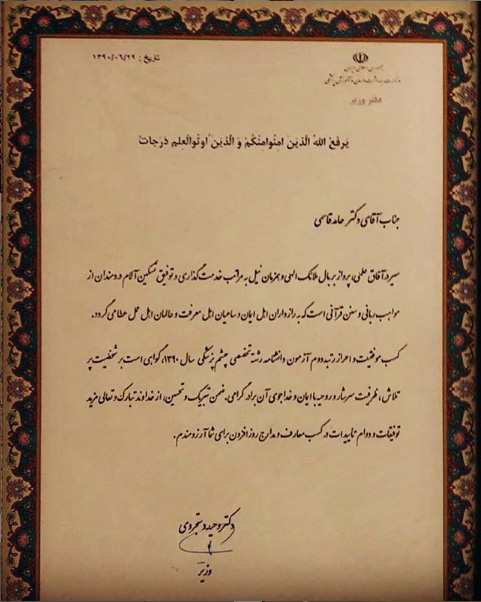 تاریخ : ۱۳۹۰/۰۶/۲۹
جمهوری اسلامی ایران
وزارت بهداشت، درمان و آموزش پزشکی
دفتر وزیر
یَرفَعِ اللهُ الَّذینَ امَنُوامِنکُم وَ الَّذینَ اُوتُوالعِلمَ دَرَجات
جناب آقای دکتر حامد قاسمی
سیر در آفاق علمی، پرواز بر بال ملائک الهی و همزمان نیل به مراتب خدمت گذاری و توفیق تسکین آلام دردمندان از
مواهب ربانی و سنن قرآنی است که به رازداران اهل ایمان و ساعیان اهل معرفت و حالمان اهل عمل عطا می گردد.
کسب موفقیت و احراز رتبه دوم آزمون دانشنامه رشته تخصصی چشم پزشکی سال ۱۳۹۰، گواهی است بر شخصیت پر
تلاش، ظرفیت سرشار و روحیه با ایمان و خداجوی آن برادر گرامی. ضمن تبریک و تحسین، از خداوند تبارک و تعالی مزید
توفیقات و دوام تاییدات در کسب معارف و مدارج روز افزون برای شما آرزومندم.
دکتر وحید دستجردی
وزیر